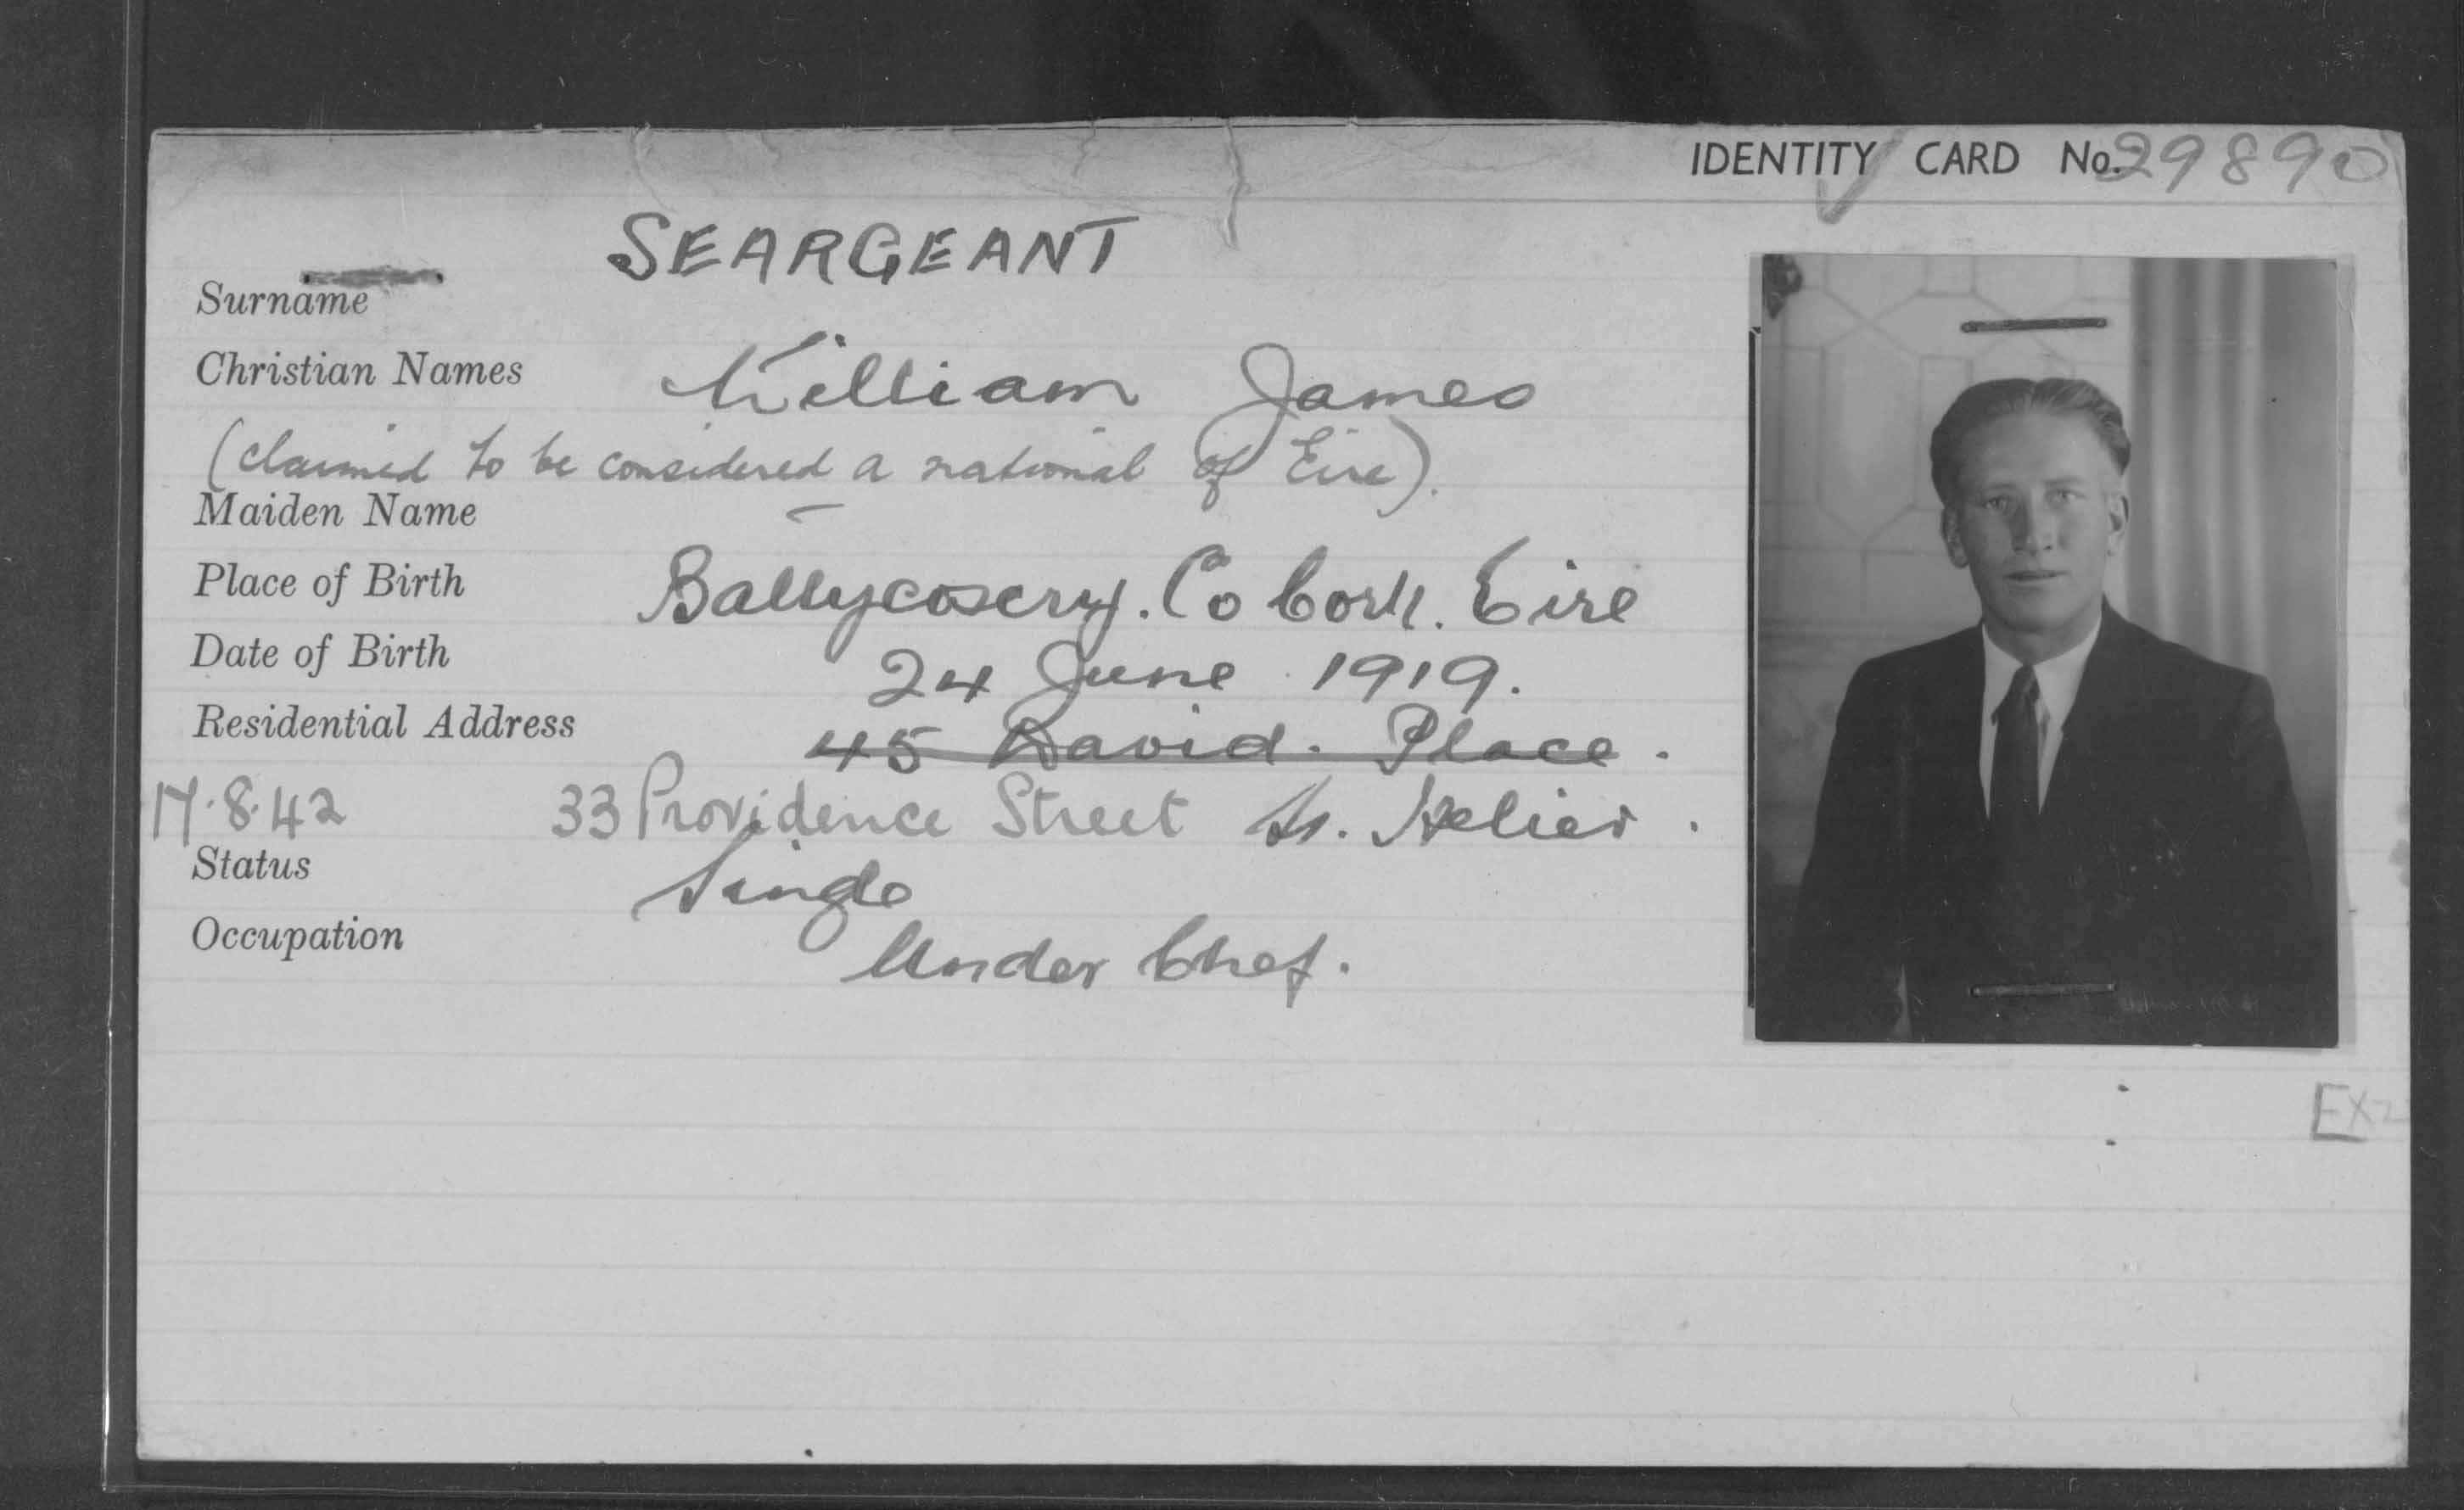 IDENTITY CARD No. 29890
SEARGEANT
Surname
Christian Names William James
(claimed to be considered a national of Eire).
Maiden Name –
Place of Birth Ballycosery. Co Cork. Eire
Date of Birth 24 June 1919.
Residential Address 45 David. Place.
17.8.42 33 Providence Street St. Helier.
Status Single
Occupation Under Chef.